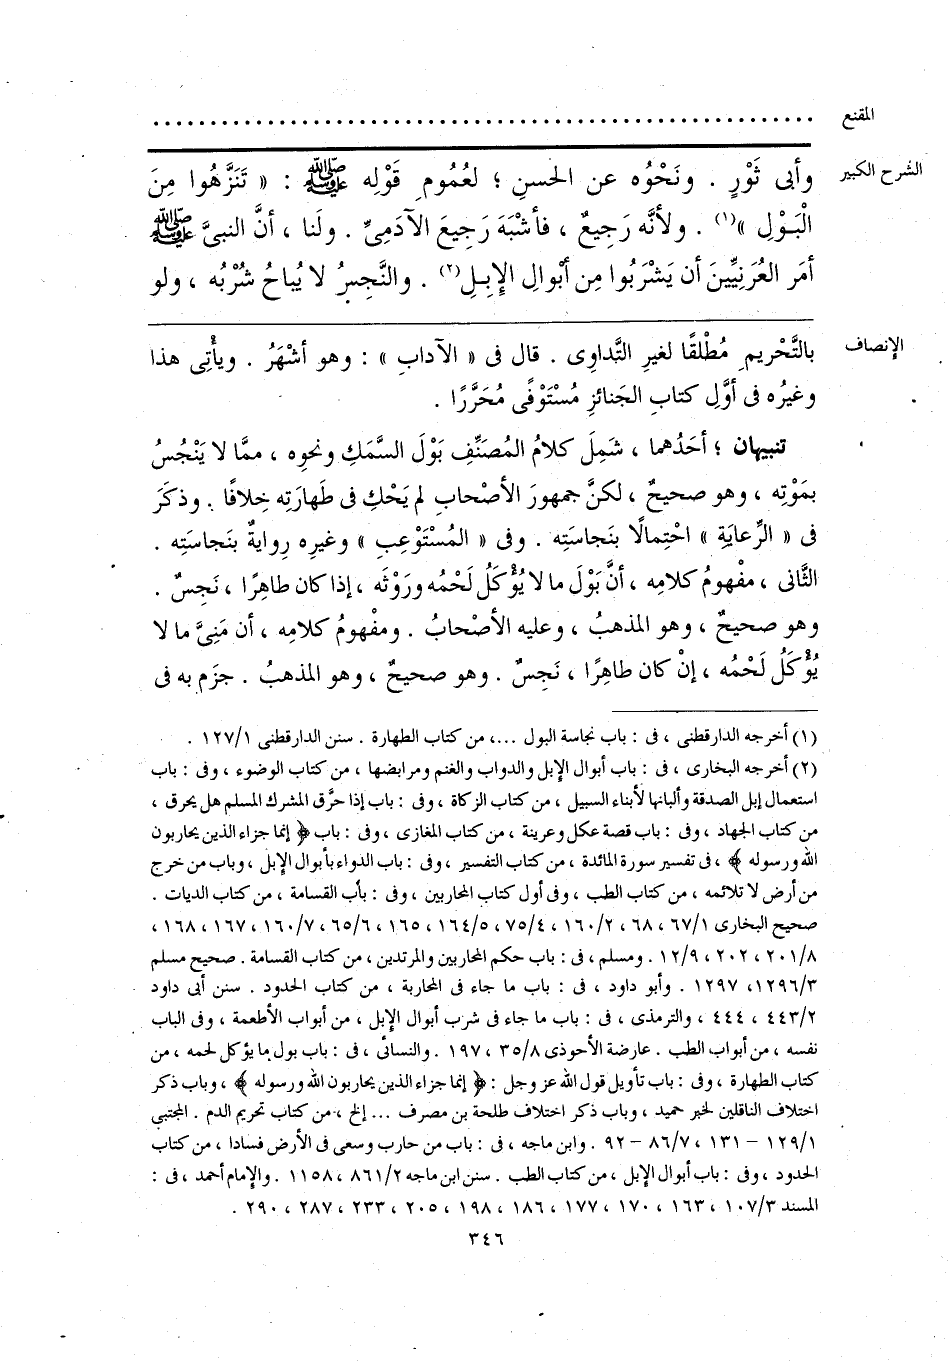 المقنع
الشرح الكبير
وأبى ثَوْرٍ . ونَحْوُه عن الحسنِ ؛ لعُمُومِ قَوْلِه ﷺ : « تَنَزَّهُوا مِنَ
الْبَوْلِ »(١) . ولأنَّه رَجِيعٌ ، فأشْبَهَ رَجِيعَ الآدَمِىِّ . ولَنا ، أنَّ النبىَّ ﷺ
أمَر العُرَنِيِّينَ أن يَشْرَبُوا مِن أبْوالِ الإِبِلِ(٢) . والنَّجِسُ لا يُباحُ شُرْبُه ، ولو
الإنصاف
بالتَّحْريمِ مُطْلَقًا لغيرِ التَّداوِى . قال فى « الآدابِ » : وهو أشْهَرُ . ويأْتِى هذا
وغيرُه فى أوَّلِ كتابِ الجَنائزِ مُسْتَوْفًى مُحَرَّرًا .
تنبيهان ؛ أحَدُهما ، شَمِلَ كلامُ المُصَنِّفِ بَوْلَ السَّمَكِ ونحوِه ، ممَّا لا يَنْجُسُ
بمَوْتِه ، وهو صحيحٌ ، لكنَّ جمهورَ الأصْحابِ لم يَحْكِ فى طَهارَتِه خِلافًا . وذكَرَ
فى « الرِّعايَةِ » احْتِمالًا بنَجاسَتِه . وفى « المُسْتَوْعِبِ » وغيرِه رِوايةٌ بنَجاسَتِه .
الثَّانى ، مفْهومُ كلامِه ، أنَّ بَوْلَ ما لا يُؤْكَلُ لَحْمُه ورَوْثَه ، إذا كان طاهِرًا ، نَجِسٌ .
وهو صحيحٌ ، وهو المذهبُ ، وعليه الأصْحابُ . ومفْهومُ كلامِه ، أن مَنِىَّ ما لا
يُؤْكَلُ لَحْمُه ، إنْ كان طاهِرًا ، نَجِسٌ . وهو صحيحٌ ، وهو المذهبُ . جزَم به فى
(١) أخرجه الدارقطنى ، فى : باب نجاسة البول ...، من كتاب الطهارة . سنن الدارقطنى ١/ ١٢٧ .
(٢) أخرجه البخارى ، فى : باب أبوال الإبل والدواب والغنم ومرابضها ، من كتاب الوضوء ، وفى : باب
استعمال إبل الصدقة وألبانها لأبناء السبيل ، من كتاب الزكاة ، وفى : باب إذا حرَّق المشرك المسلم هل يحرق ،
من كتاب الجهاد ، وفى : باب قصة عكل وعرينة ، من كتاب المغازى ، وفى : باب ﴿ إنما جزاء الذين يحاربون
الله ورسوله ﴾ ، فى تفسير سورة المائدة ، من كتاب التفسير ، وفى : باب الدواء بأبوال الإبل ، وباب من خرج
من أرض لا تلائمه ، من كتاب الطب ، وفى أول كتاب المحاربين ، وفى : باب القسامة ، من كتاب الديات .
صحيح البخارى ١/ ٦٧ ، ٦٨ ، ٢/ ١٦٠ ، ٤/ ٧٥ ، ٥/ ١٦٤ ، ١٦٥ ، ٦/ ٦٥ ، ٧/ ١٦٠ ، ١٦٧ ، ١٦٨ ،
٨/ ٢٠١ ، ٢٠٢ ، ٩/ ١٢ . ومسلم ، فى : باب حكم المحاربين والمرتدين ، من كتاب القسامة . صحيح مسلم
٣/ ١٢٩٦، ١٢٩٧ . وأبو داود ، فى : باب ما جاء فى المحاربة ، من كتاب الحدود . سنن أبى داود
٢/ ٤٤٣ ، ٤٤٤ ، والترمذى ، فى : باب ما جاء فى شرب أبوال الإبل ، من أبواب الأطعمة ، وفى الباب
نفسه ، من أبواب الطب . عارضة الأحوذى ٨/ ٣٥ ، ١٩٧ . والنسائى ، فى : باب بول ما يؤكل لحمه ، من
كتاب الطهارة ، وفى : باب تأويل قول الله عز وجل : ﴿ إنما جزاء الذين يحاربون الله ورسوله ﴾ ، وباب ذكر
اختلاف الناقلين لخبر حميد ، وباب ذكر اختلاف طلحة بن مصرف ... إلخ ، من كتاب تحريم الدم . المجتبى
١/ ١٢٩ – ١٣١ ، ٧/ ٨٦ – ٩٢ . وابن ماجه ، فى : باب من حارب وسعى فى الأرض فسادا ، من كتاب
الحدود ، وفى : باب أبوال الإبل ، من كتاب الطب . سنن ابن ماجه ٢/ ٨٦١ ، ١١٥٨ . والإمام أحمد ، فى :
المسند ٣/ ١٠٧ ، ١٦٣ ، ١٧٠ ، ١٧٧ ، ١٨٦ ، ١٩٨ ، ٢٠٥ ، ٢٣٣ ، ٢٨٧ ، ٢٩٠ .
٣٤٦